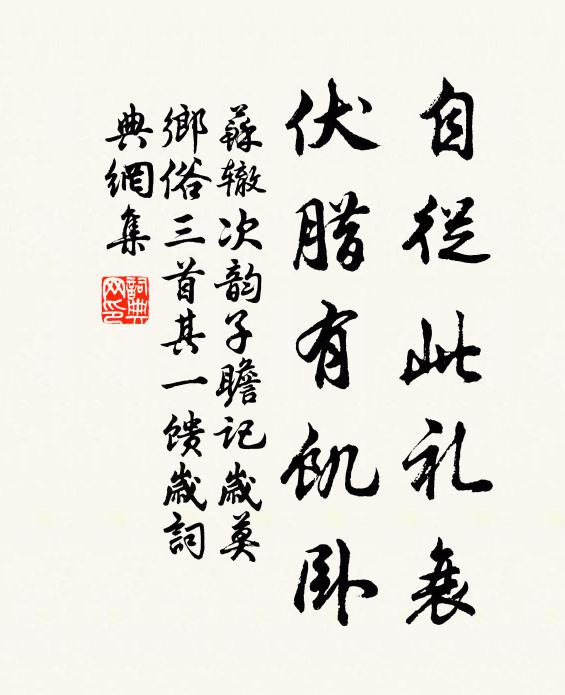 自從此礼衰
伏腊有飢卧
蘇辙次韵子瞻記歲莫
鄉俗三首其一馈歲詞
典網集
詞典网印